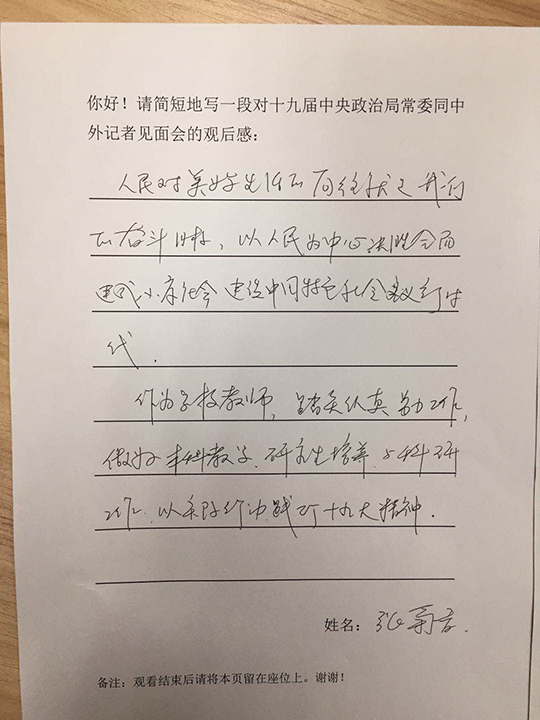 你好！请简短地写一段对十九届中央政治局常委同中
外记者见面会的观后感：
人民对美好生活的向往就是我们
的奋斗目标，以人民为中心决胜全面
建成小康社会 建设中国特色社会主义新时
代.
作为高校教师，踏实认真努力工作，
做好本科教学、研究生培养、与科研
工作，以实际行动践行十九大精神.
姓名：张
备注：观看结束后请将本页留在座位上。谢谢！